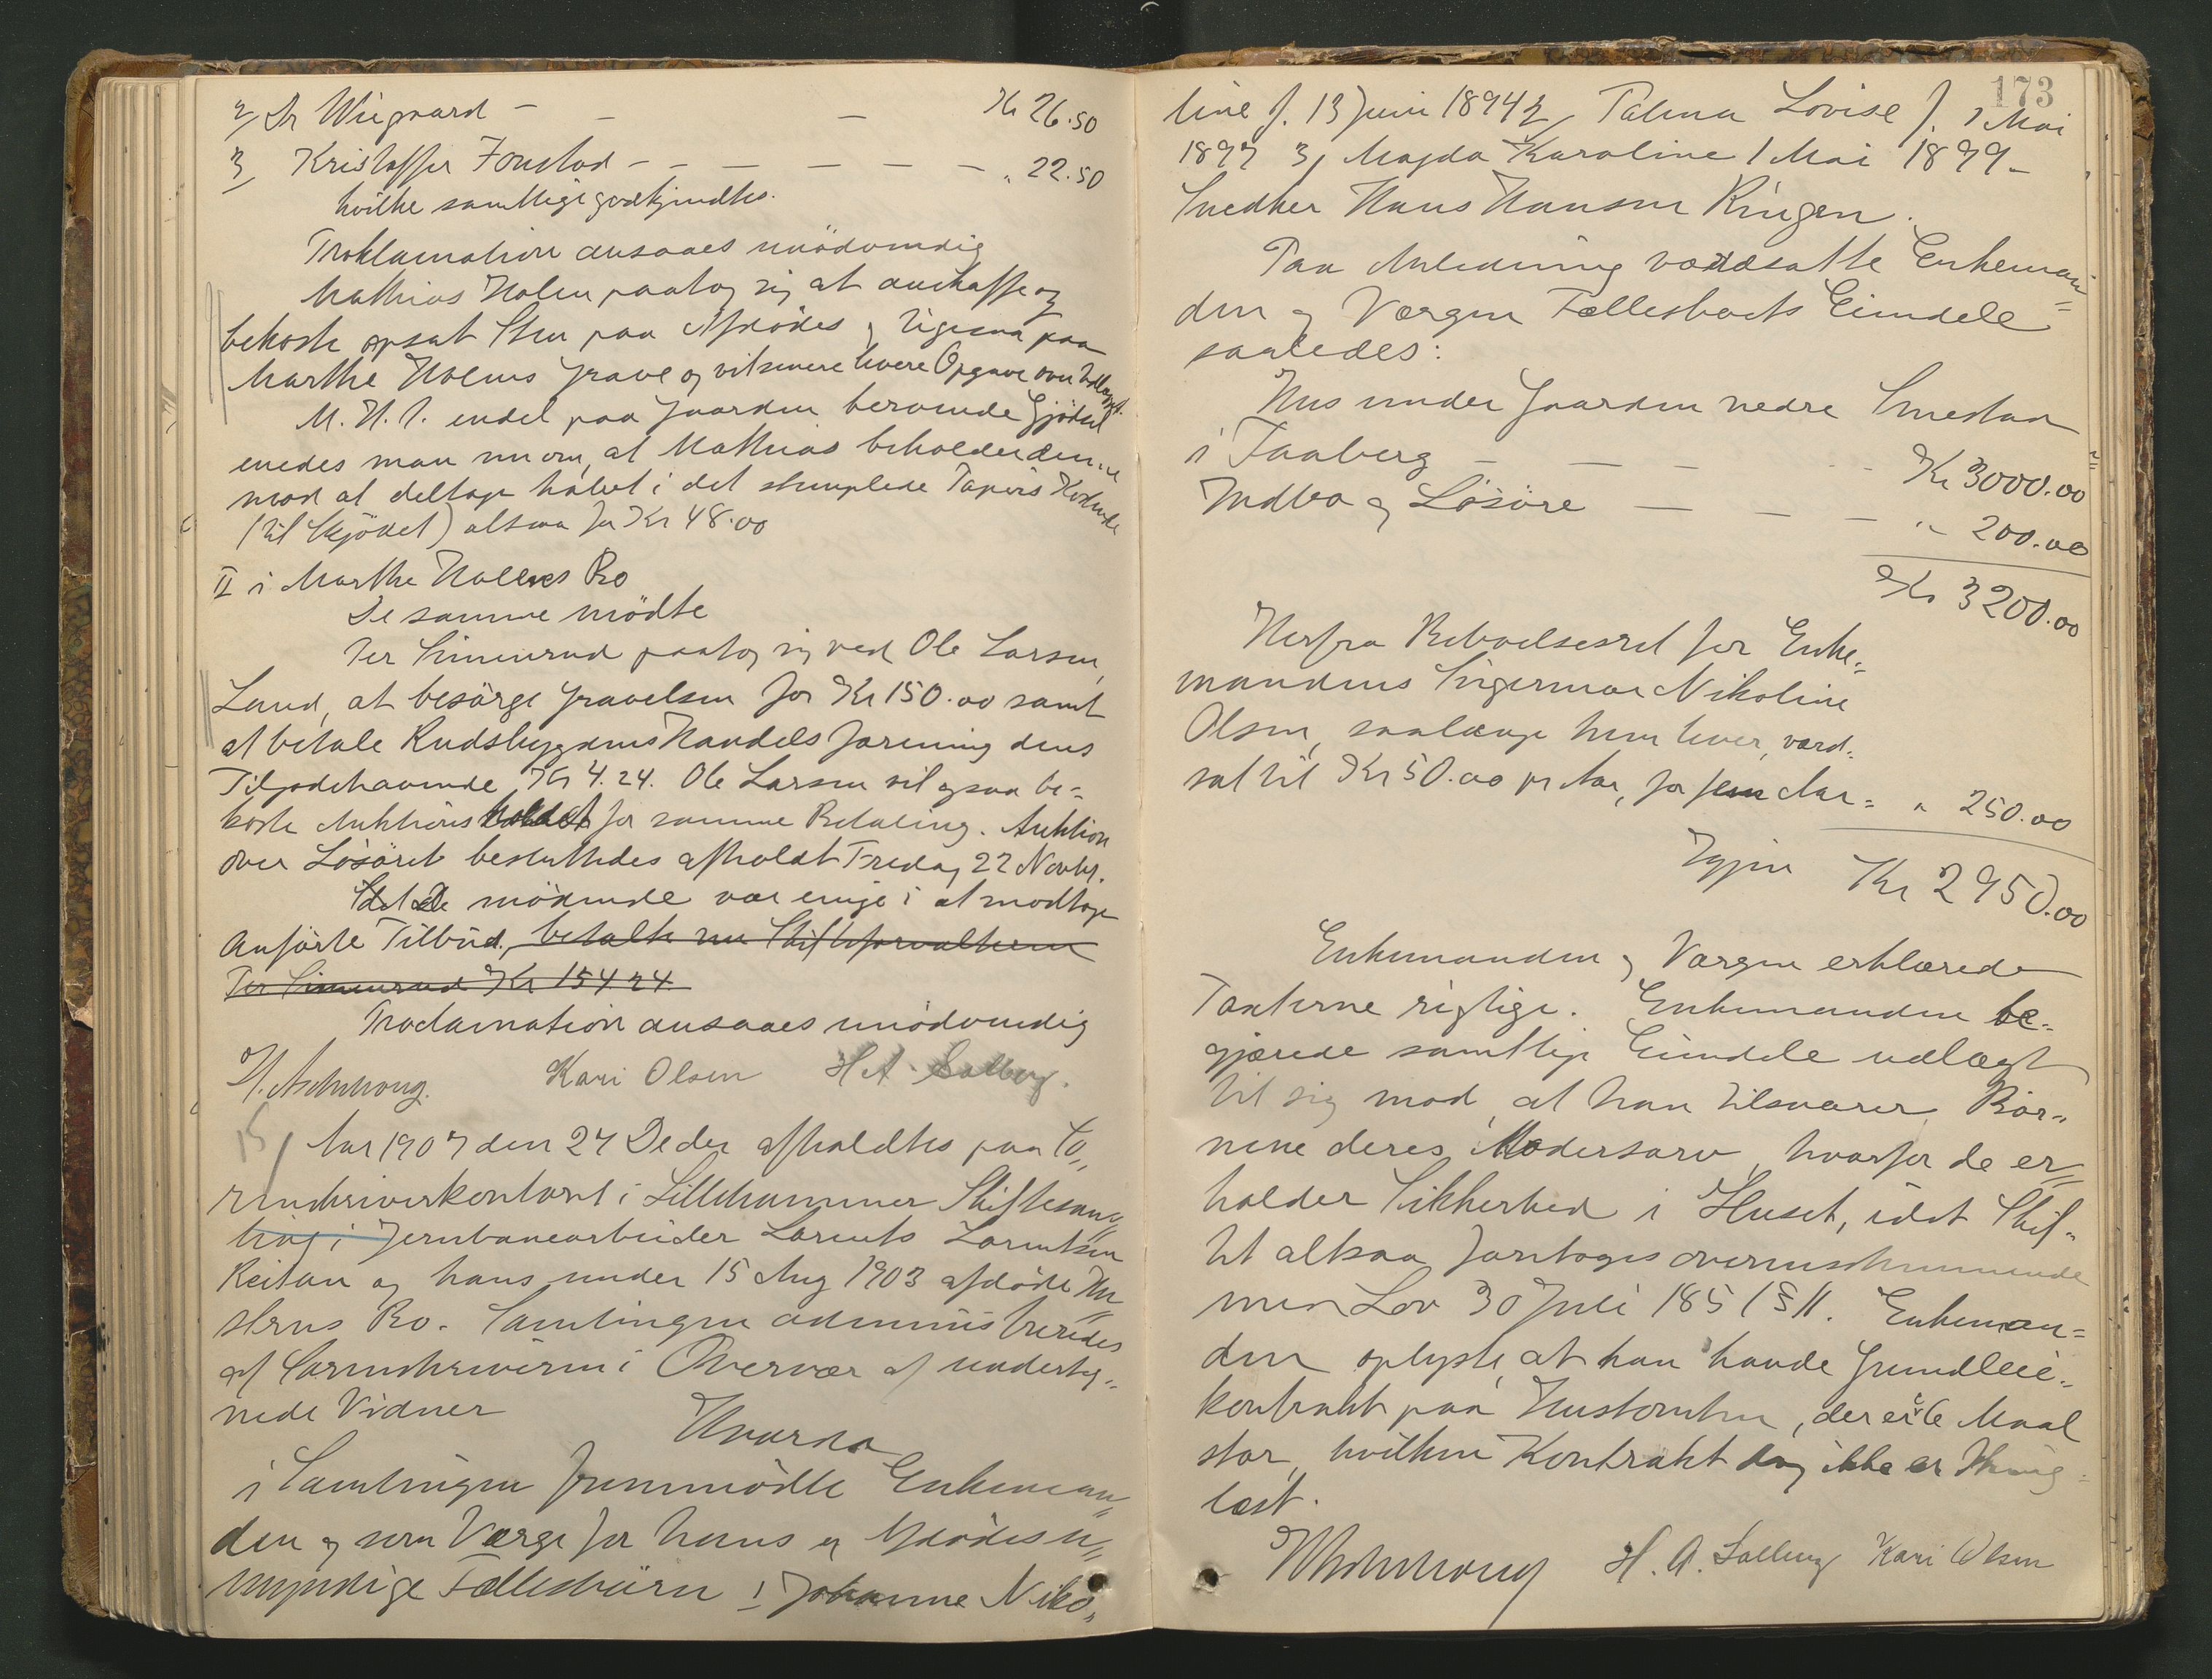 2, Dr Wiegaard – – – Kr 26.50
3, Kristoffer Fonstad – – – – – – – " 22.50
hvilke samtlige godkjendtes.
Proklamation ansaaes unödvendig
Mathias Holen paatog sig at anskaffe og
bekoste opsat Sten paa Afdödes og ligesaa paa
Marthe Holens Grave og vil senere levere Opgave over Udlægget.
M. H. t. endel paa Gaarden beroende Gjödsel
enedes man nu om, at Mathias beholder denne
mod at deltage halvt i det stemplede Papirs Kostende
(til Skjödet) altsaa for Kr 48.00
II i Marthe Holens Bo
De samme mödte
Per Simenrud paatog sig ved Ole Larsen
Land, at besörge Gravelsen for Kr 150.00 samt
at betale Rudsbygdens Handelsforening dens
Tilgodehavende Kr 4.24. Ole Larsen vil ogsaa be=
koste Auktions for samme Betaling. Auktion
over Lösöret besluttedes afholdt Fredag 22 Novbr.
De mödende var enige i at modtage
anförte Tilbud, betalte nu Skifteforvalteren
Per Simenrud Kr 154 24.
Proclamation ansaaes unödvendig
Kari Olsen H A. Salberg.
15/ Aar 1907 den 27 De der afholdtes paa So=
renskriverkontoret i Lillehammer Skiftesam=
ling i Jernbanearbeider Laurits Lauritsen
Reitan og hans under 15 Aug 1903 afdöde Hu=
strus Bo. Samlingen administreredes
af Sorenskriveren i Overvær af underteg=
nede Vidner
Hvorda
i Samlingen fremmödte Enkeman=
den og som Værge for hans og Afdödes u=
myndige Fællesbörn 1 Johanne Niko=
173
line f. 13 Juni 1894 2, Palma Lovise f. 1 Mai
1897 3, Magda Karoline 1 Mai 1899 –
Snedker Hans Hansen Ringen.
Paa Anledning værdsatte Enkeman=
den og Værgen Fællesboets Eiendele
saaledes:
Hus under Gaarden nedre Smestad
i Faaberg – – – – Kr 3000.00
Indbo og Lösöre – – – – " 200.00
Kr 3200.00
Herfra Beboelsesret for Enke=
mandens Svigermor Nikoline
Olsen, saalænge hun lever, værd=
sat til Kr 50.00 pr Aar, for fem Aar = " 250.00
Igjen Kr 2950.00
Enkemanden og Værgen erklærede
Taxterne rigtige. Enkemanden be=
gjærede samtlige Eiendele udlagt
til sig mod, at han tilsvarer Bör=
nene deres Mødrearv, hvorfor de er=
holder Sikkerhed i Huset, idet Skif=
tet altsaa foretoges overensstemmende
med Lov 30 Juli 1851 § 11. Enkeman=
den oplyste, at han havde Grundleie=
kontrakt paa Hustomten, der er Maal
stor, hvilken Kontrakt dog ikke er thing=
læst.
H. A. Salberg Kari Olsen